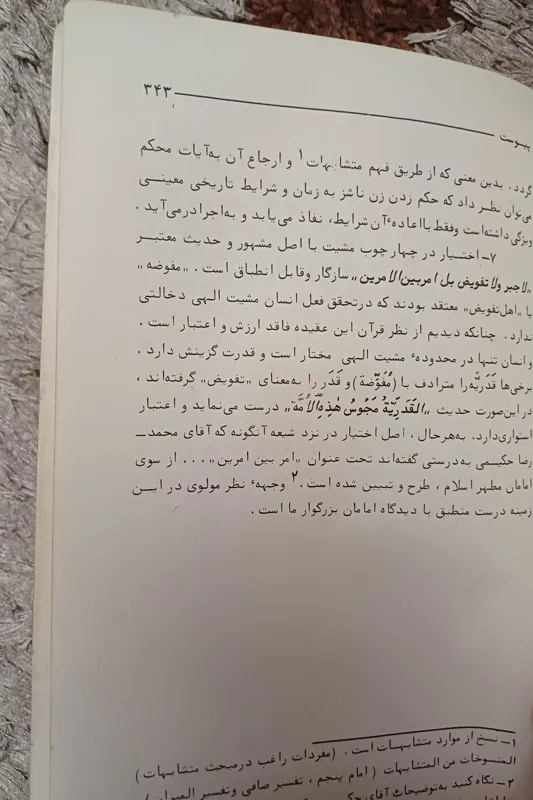 پیوست ۳۴۳
گردد. بدین معنی که از طریق فهم متشابهات۱ و ارجاع آن به‌آیات محکم
می‌توان نظر داد که حکم زدن زن ناشز به زمان و شرایط تاریخی معینی
ویژگی داشته‌است وفقط بااعادهٔ آن شرایط، نفاذ می‌یابد و به‌اجرادرمی‌آید.
۷ـ اختیار در چهار چوب مشیت با اصل مشهور و حدیث معتبر
"لاجبر ولا تفویض بل امربین‌الامرین" سازگار وقابل انطباق است. "مفوضه"
یا "اهل‌تفویض" معتقد بودند که درتحقق فعل انسان مشیت الهی دخالتی
ندارد. چنانکه دیدیم از نظر قرآن این عقیده فاقد ارزش و اعتبار است.
وانسان تنها در محدودهٔ مشیت الهی مختار است و قدرت گزینش دارد.
برخی‌ها قَدَریَّه‌را مترادف با (مُفَوِّضَة) و قَدَر را به‌معنای "تفویض" گرفته‌اند،
دراین‌صورت حدیث "القَدَرِیَّةُ مَجُوسُ هٰذِهِ الاُمَّة" درست می‌نماید و اعتبار
استواری‌دارد. به‌هرحال، اصل اختیار در نزد شیعه آنگونه که آقای محمدـ
رضا حکیمی به‌درستی گفته‌اند تحت عنوان "امر بین امرین"... از سوی
امامان مطهر اسلام، طرح و تبیین شده است.۲ وجههٔ نظر مولوی در این
زمینه درست منطبق با دیدگاه امامان بزرگوار ما است.
۱ـ نسخ از موارد متشابهات است. (مفردات راغب درمبحث متشابهات)
المنسوخات من المتشابهات (امام پنجم، تفسیر صافی وتفسیر المیزان)
۲ـ نگاه کنید به‌توضیحات آقای